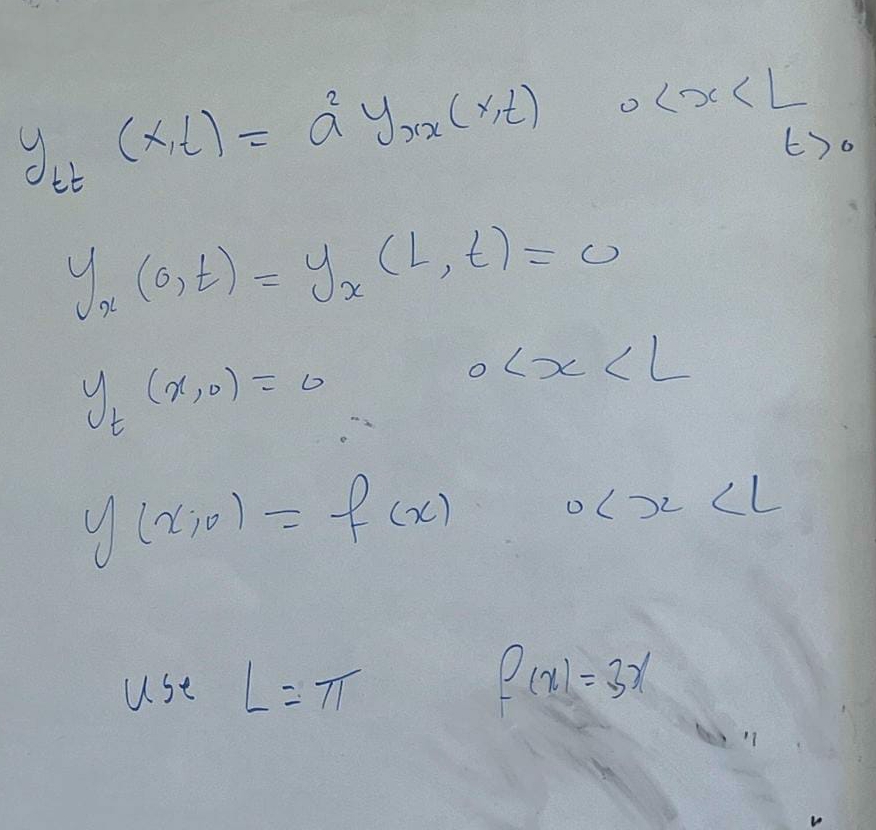 y_tt (x,t) = a² y_xx (x,t) 0<x<L
t>0
y_x (0,t) = y_x (L,t) = 0
y_t (x,0) = 0 0<x<L
y(x,0) = f(x) 0<x<L
use L=π f(x)=3x